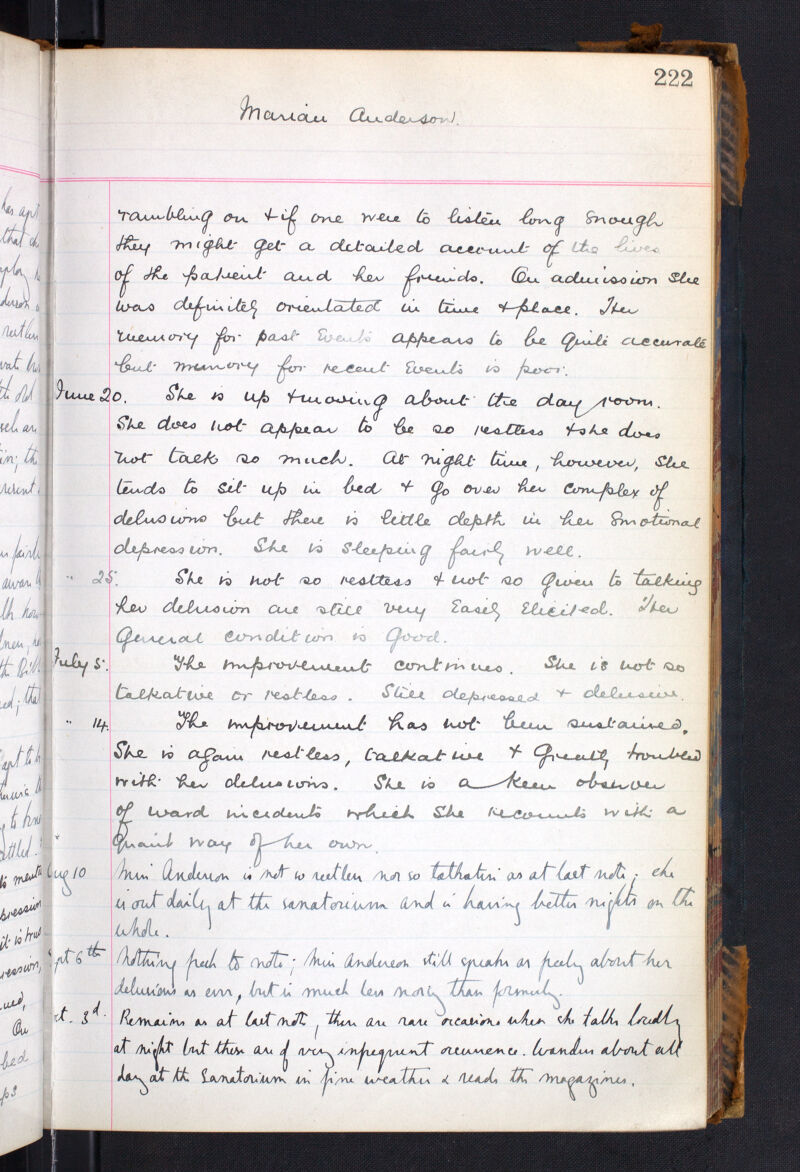 222
Marian Anderson.
rambling on & if one were to listen long enough
they might get a detailed account of the lives
of the patient and her friends. On admission she
was definitely orientated in time & place. Her
memory for past events appears to be quite accurate
but memory for recent events is poor.
June 20. She is up & moving about the day room.
She does not appear to be so restless & she does
not talk so much. At night time, however, she
tends to sit up in bed & go over her complex of
delusions but there is little depth in her emotional
depression. She is sleeping fairly well.
" 25. She is not so restless & not so given to talking
her delusion are still very easily elicited. Her
general condition is good.
July 5. The improvement continues. She is not so
talkative or restless. Still depressed & delusive.
" 14. The improvement has not been sustained.
She is again restless, talkative & greatly troubled
with her delusions. She is a keen observer
of ward incidents which she recounts with a
quaint way of her own.
Aug 10 Miss Anderson is not so restless nor so talkative as at last note; she
is out daily at the sanatorium and is having better nights on the
whole.
Sept 6th Nothing fresh to note; Miss Anderson still speaks as freely about her
delusions as ever, but is much less noisy than formerly.
Oct. 3d. Remains as at last note, there are rare occasions when she talks loudly
at night but these are of very infrequent occurrence. Wanders about all
day at the Sanatorium in fine weather & reads the magazines.